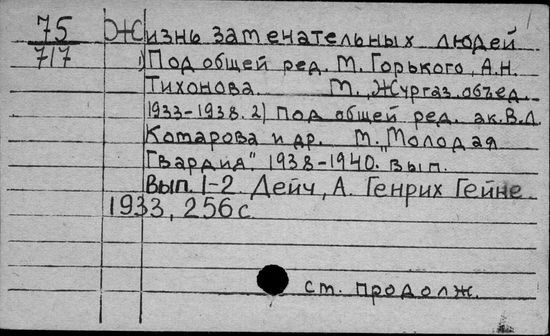 75 Жизнь заменательных людей
717 1) Под общей ред. М. Горького, А.Н.
Тихонова. М., Жургаз.объед.
1933-1938. 2) Под общей ред. ак. В.Л.
Комарова и др. М. "Молодая
Гвардия" 1938-1940. Вып.
Вып. 1-2. Дейч, А. Генрих Гейне.
1933, 256 с.
см. продолж.